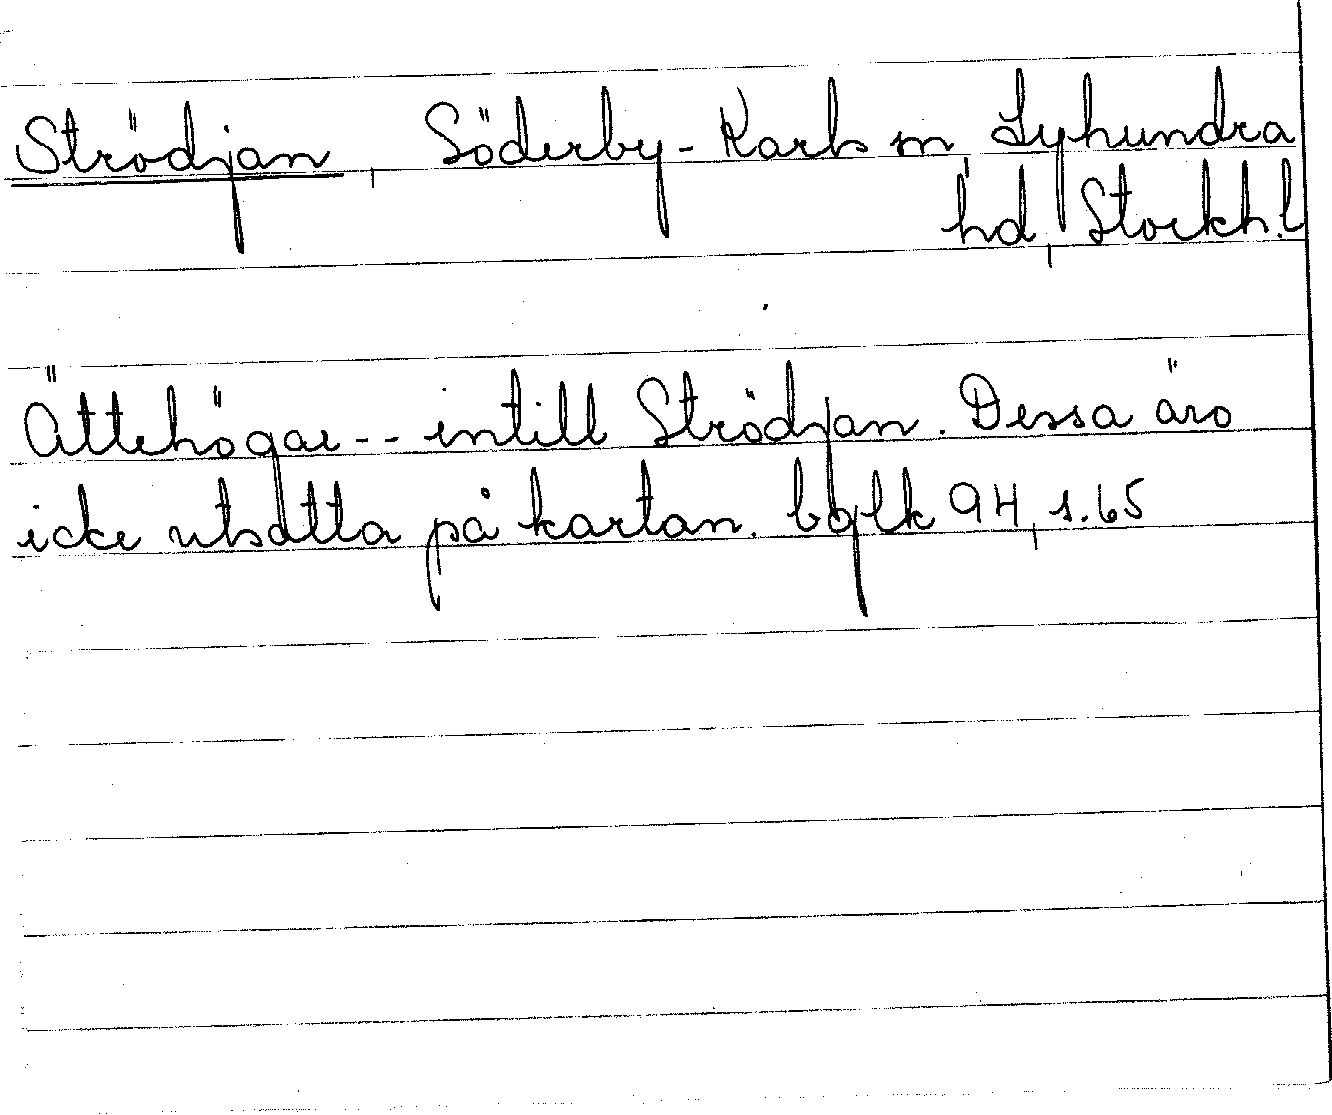 Strödjan, Söderby-Karls sn, Lyhundra
hd, Stockh.l
Ättehögar -- intill Strödjan. Dessa äro
icke utsatta på kartan. bglk 94, s.65